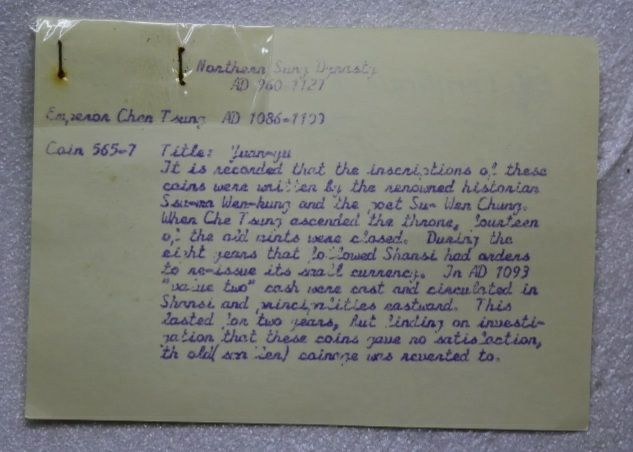 Northern Sung Dynasty
AD 960-1127
Emperor Chen Tsung AD 1086-1100
Coin 565-7 Title: Yuan-yu
It is recorded that the inscriptions of these
coins were written by the renowned historian
Ssu-ma Wen-kung and the poet Su- Wen Chung.
When Che Tsung ascended the throne, fourteen
of the old mints were closed. During the
eight years that followed Shansi had orders
to re-issue its small currency. In AD 1093
"value two" cash were cast and circulated in
Shansi and principalities eastward. This
lasted for two years, but finding on investi-
gation that these coins gave no satisfaction,
th old coinage was reverted to.